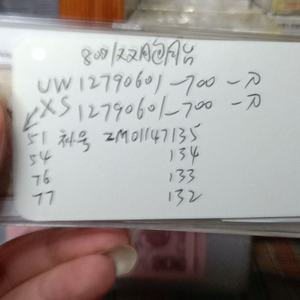 8001双双胞胎
UW12790601—700 一刀
XS12790601—700 一刀
51 补号 ZM01147135
54 134
76 133
77 132